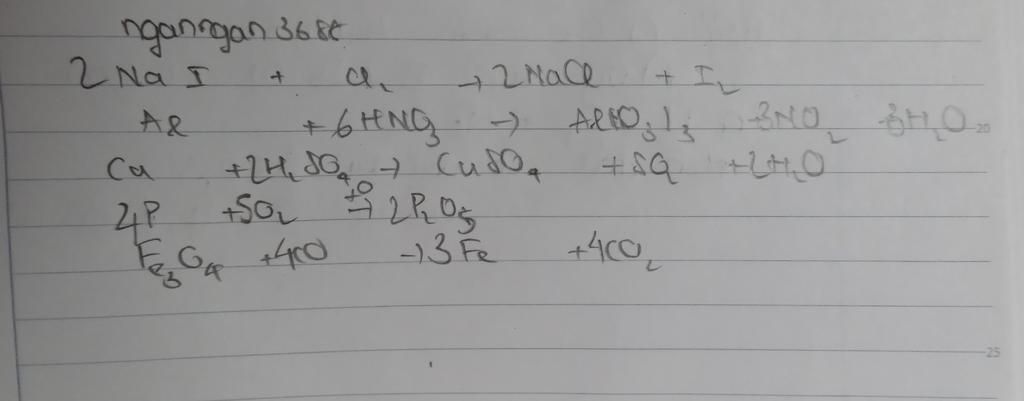 nganngan368t
2NaI + Cl₂ → 2NaCl + I₂
Al + 6HNO₃ → Al(NO₃)₃ 3NO₂ 3H₂O 20
Cu + 2H₂SO₄ → CuSO₄ + SO₂ + 2H₂O
4P + 5O₂ → 2P₂O₅
Fe₃O₄ + 4CO → 3Fe + 4CO₂
25